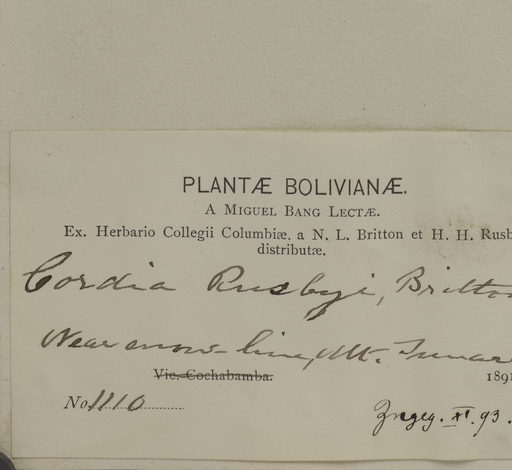 PLANTÆ BOLIVIANÆ.
A MIGUEL BANG LECTÆ.
Ex. Herbario Collegii Columbiæ, a N. L. Britton et H. H. Rusb
distributæ.
Cordia Rusbyi, Britton
Near snow-line, Mt. Tunar
Vic. Cochabamba. 1891
No. 1110
Zngeg. XI. 93.